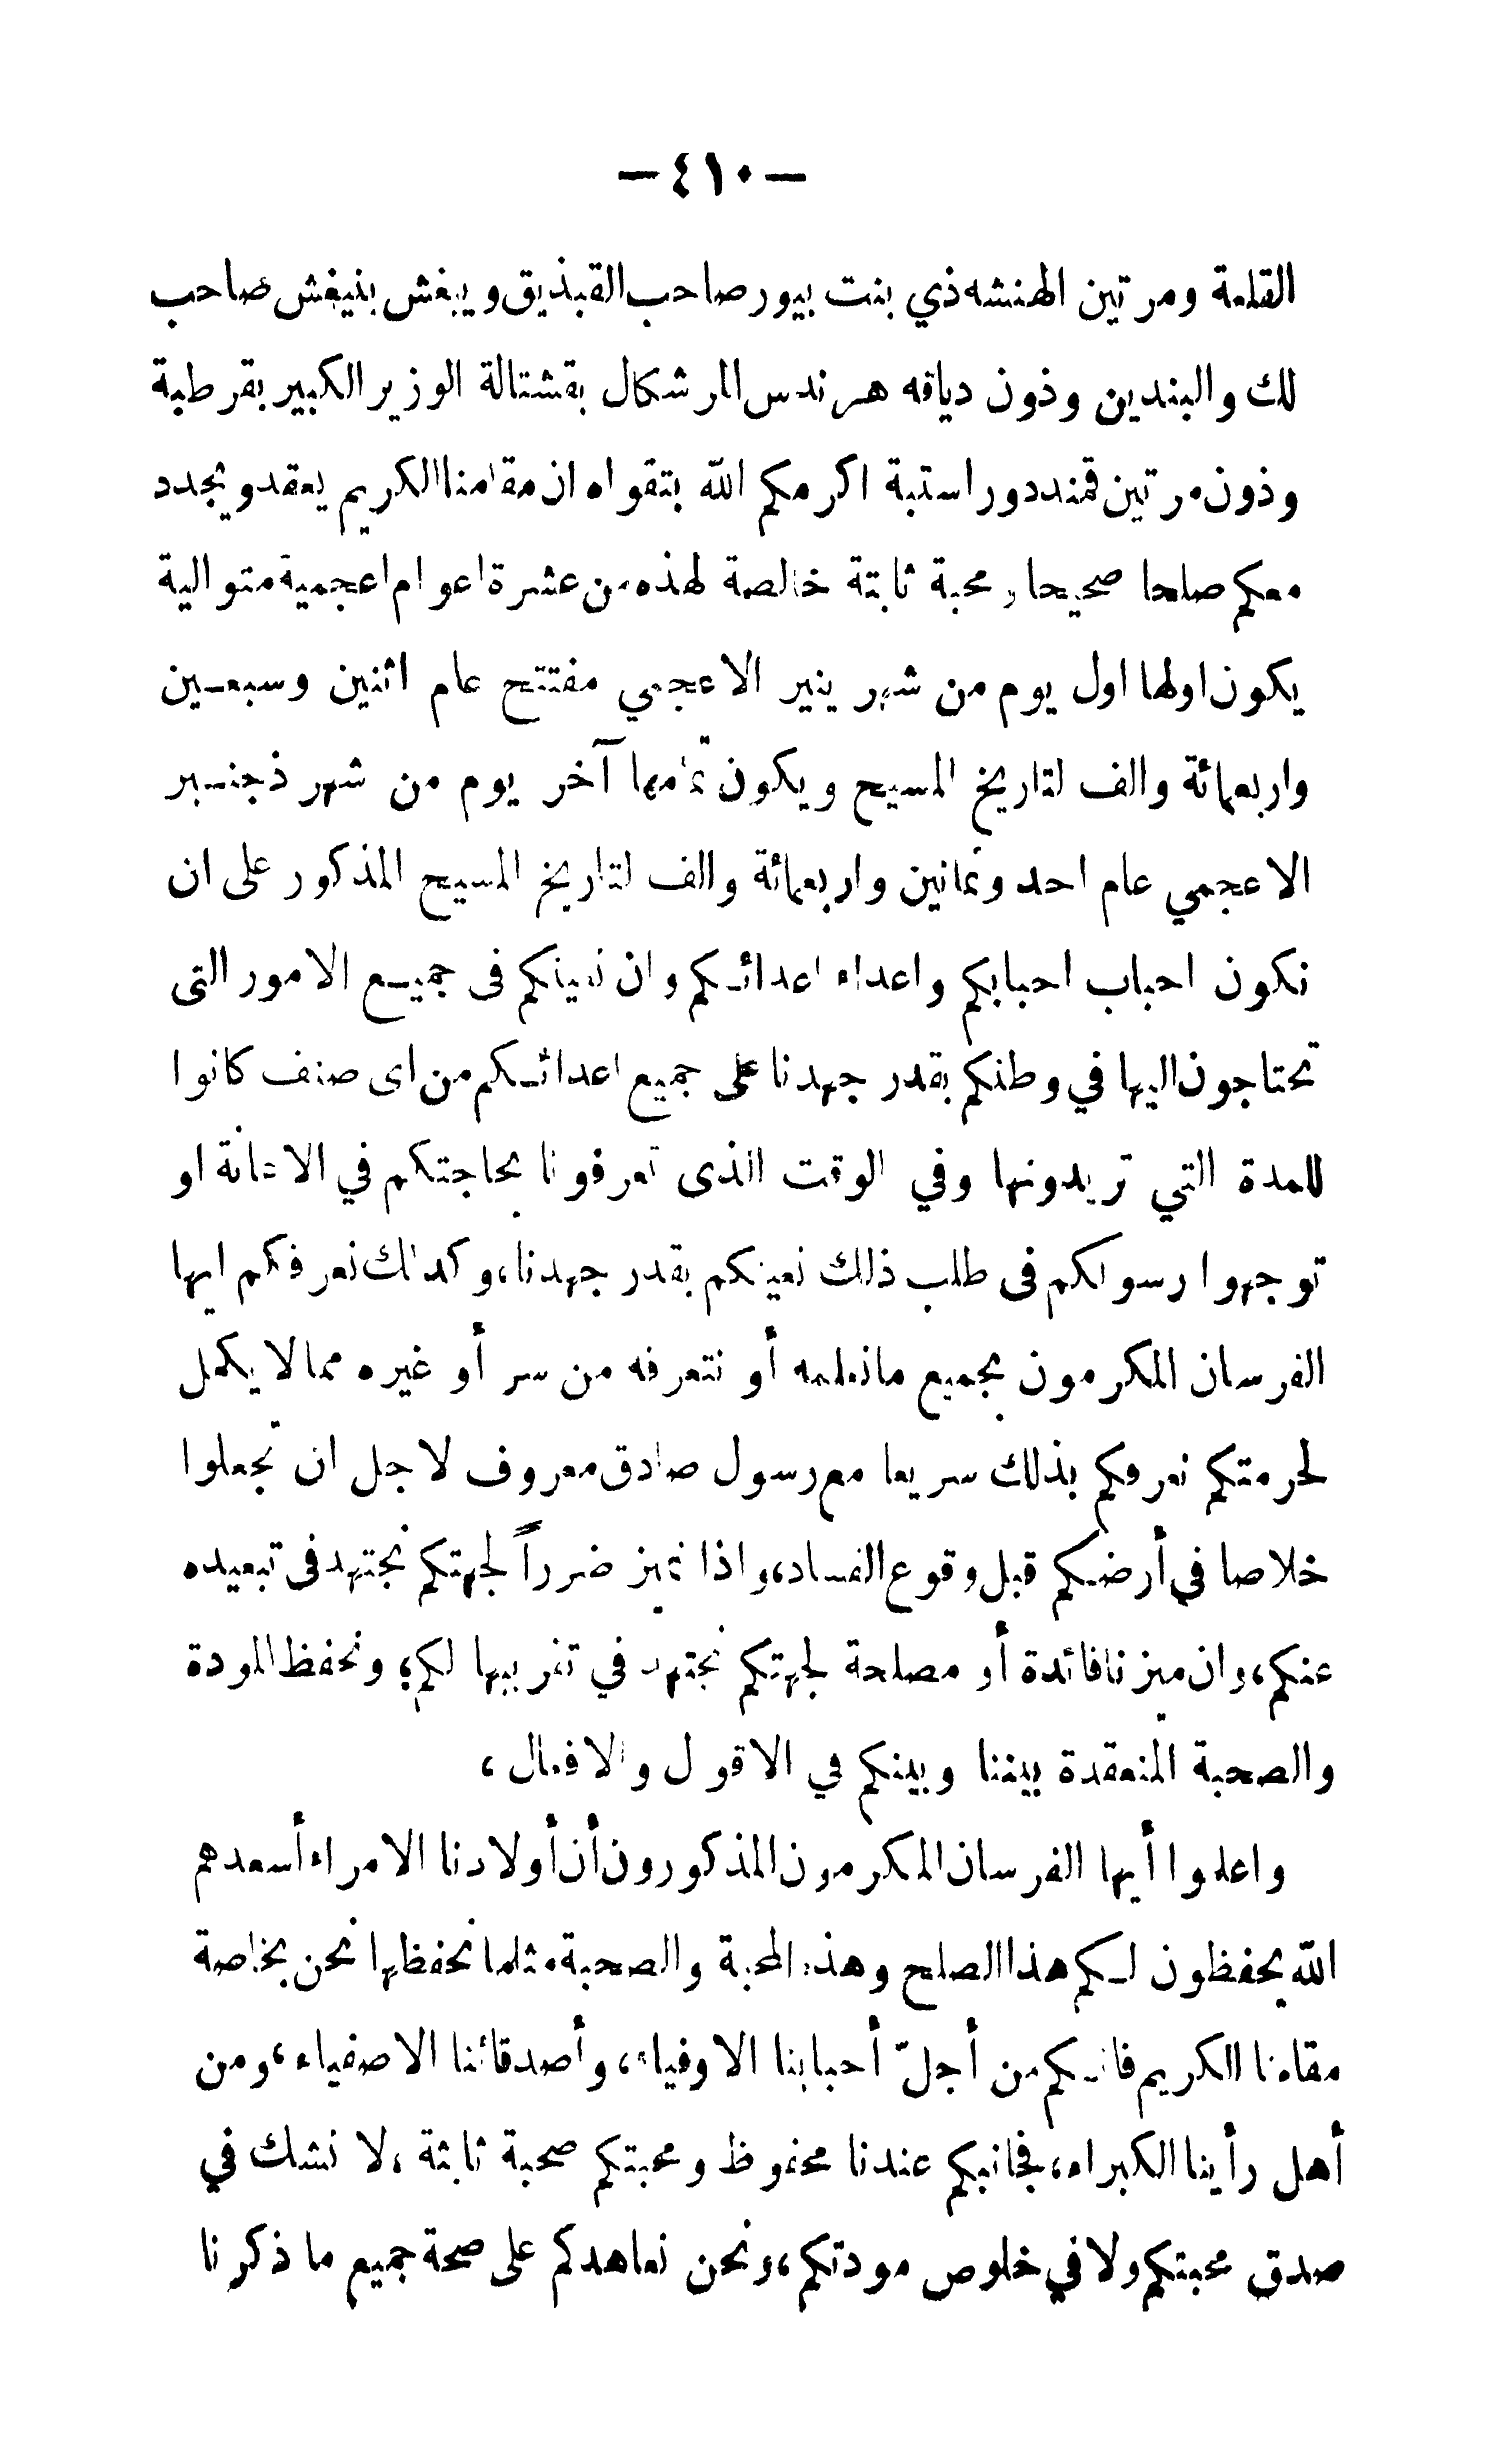 — ٤١٠ —
القلعة ومرتين الهنشه ذي بنت بيور صاحب القبذيق ويبغش بنيغش صاحب
لك والبندين وذون دياقه هرندس المرشكال بقشتالة الوزير الكبير بقرطبة
وذون مرتين قمنددور استبة اكرمكم الله بتقواه ان مقامنا الكريم يعقد ويجدد
معكم صلحا صحيحا ومحبة ثابتة خالصة لهذه من عشرة اعوام اعجمية متوالية
يكون اولها اول يوم من شهر ينير الاعجمي مفتتح عام اثنين وسبعين
واربعمائة والف لتاريخ المسيح ويكون تمامها آخر يوم من شهر ذجنبر
الاعجمي عام احد وثمانين واربعمائة والف لتاريخ المسيح المذكور على ان
نكون احباب احبابكم واعداء اعدائكم وان نعينكم فى جميع الامور التى
تحتاجون اليها في وطنكم بقدر جهدنا على جميع اعدائكم من اى صنف كانوا
للمدة التي تريدونها وفي الوقت الذى تعرفونا بحاجتكم في الاعانة او
توجهوا رسولكم فى طلب ذلك نعينكم بقدر جهدنا، وكذلك نعرفكم ايها
الفرسان المكرمون بجميع مانعلمه أو نتعرفه من سر أو غيره مما لا يكمل
لحرمتكم نعرفكم بذلك سريعا مع رسول صادق معروف لاجل ان تجعلوا
خلاصا في أرضكم قبل وقوع الفساد، واذا نميز ضرراً لجهتكم نجتهد فى تبعيده
عنكم، وان ميزنا فائدة أو مصلحة لجهتكم نجتهد في تقريبها لكم؛ ونحفظ المودة
والصحبة المنعقدة بيننا وبينكم في الاقول والافعال،
واعلموا أيها الفرسان المكرمون المذكورون أن أولادنا الامراء أسعدهم
الله يحفظون لكم هذا الصلح وهذه المحبة والصحبة مثلما نحفظها نحن بخاصة
مقامنا الكريم فانكم من أجلّ أحبابنا الاوفياء، وأصدقائنا الاصفياء، ومن
أهل رأينا الكبراء، فجانبكم عندنا محفوظ ومحبتكم صحبة ثابثة، لا نشك في
صدق محبتكم ولا في خلوص مودتكم، ونحن نعاهدكم على صحة جميع ما ذكرنا